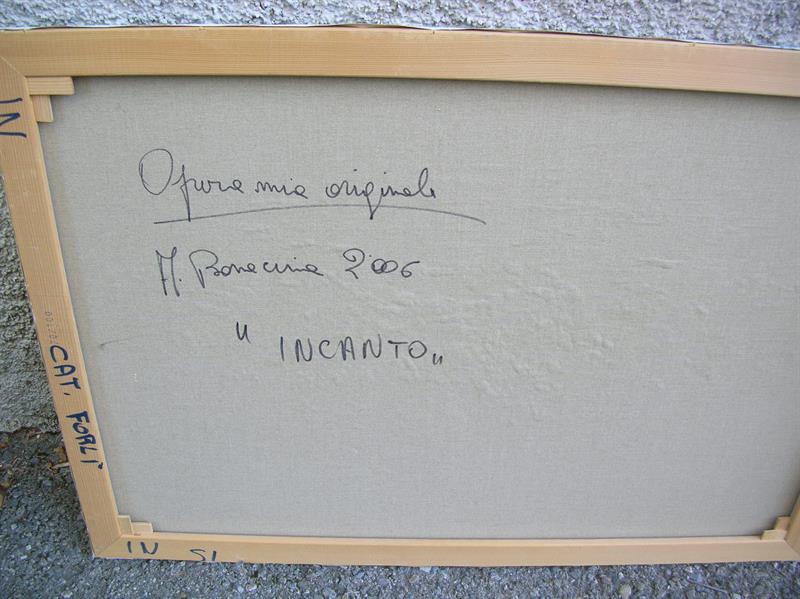 Opera mia originale
M. Bonacina 2006
" INCANTO "
IN
CAT. FORLÌ
IN SI